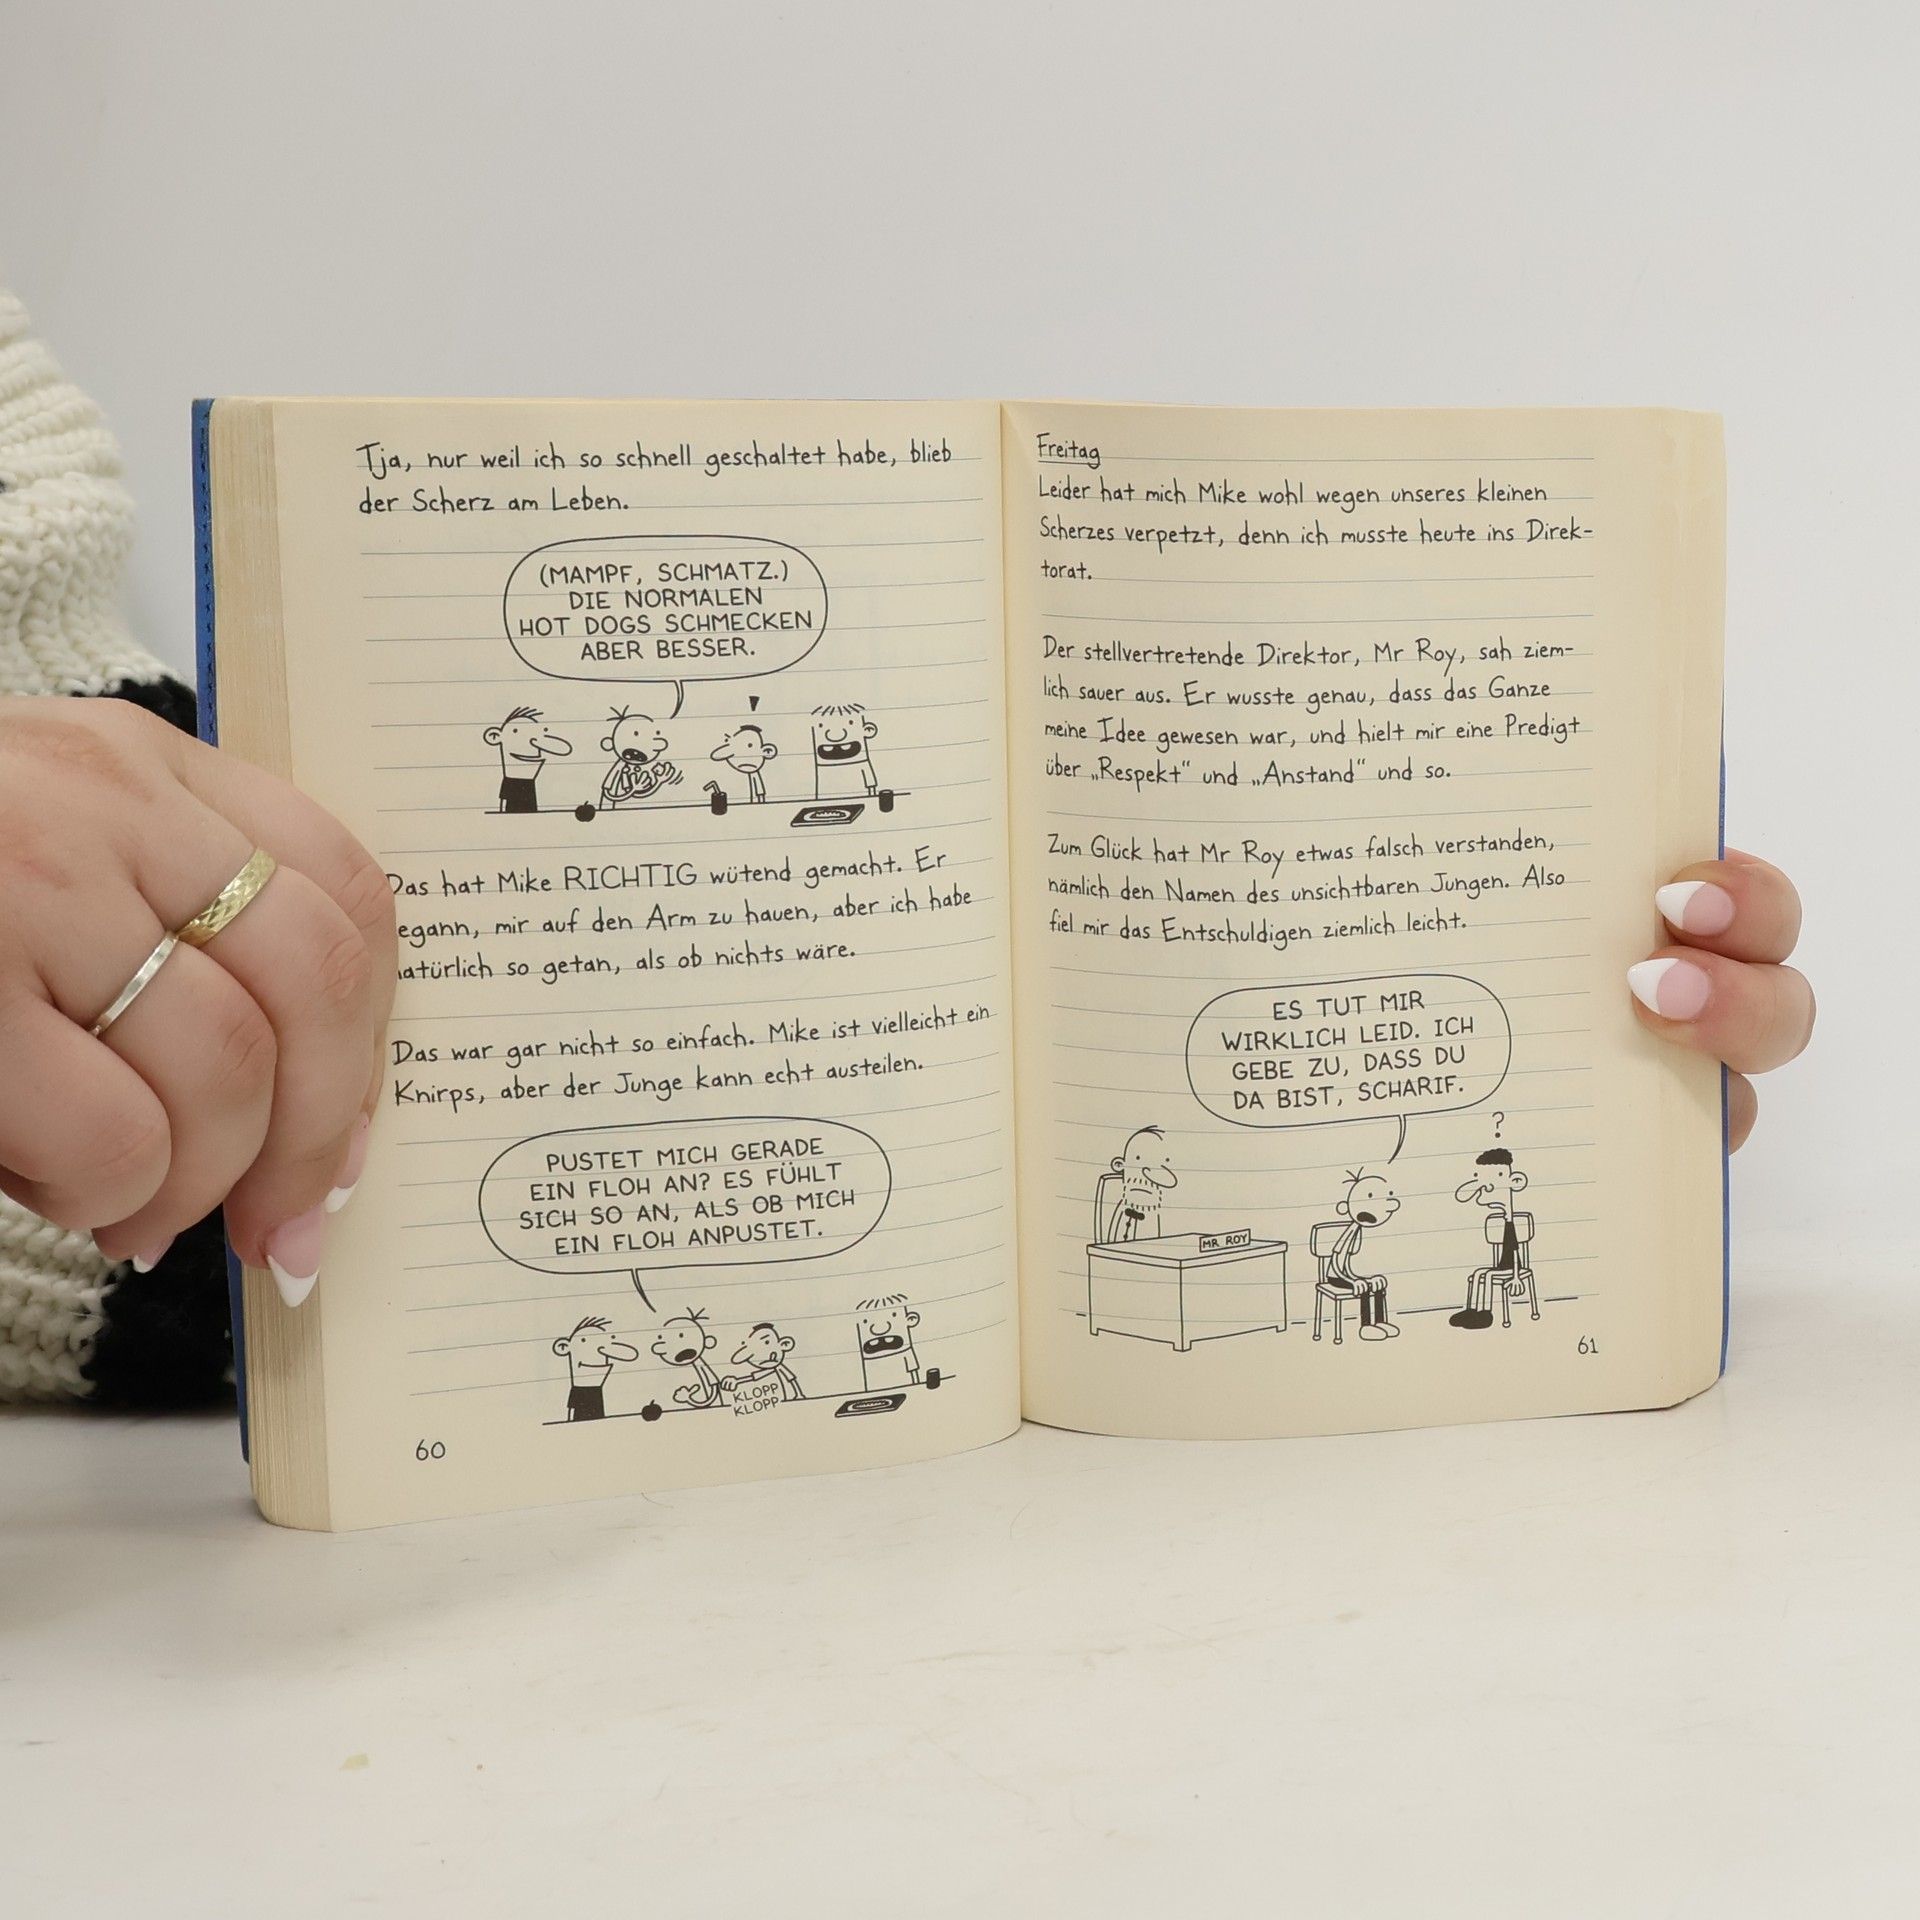 Tja, nur weil ich so schnell geschaltet habe, blieb
der Scherz am Leben.
(MAMPF, SCHMATZ.)
DIE NORMALEN
HOT DOGS SCHMECKEN
ABER BESSER.
!
Das hat Mike RICHTIG wütend gemacht. Er
egann, mir auf den Arm zu hauen, aber ich habe
natürlich so getan, als ob nichts wäre.
Das war gar nicht so einfach. Mike ist vielleicht ein
Knirps, aber der Junge kann echt austeilen.
PUSTET MICH GERADE
EIN FLOH AN? ES FÜHLT
SICH SO AN, ALS OB MICH
EIN FLOH ANPUSTET.
KLOPP
KLOPP
60
Freitag
Leider hat mich Mike wohl wegen unseres kleinen
Scherzes verpetzt, denn ich musste heute ins Direk-
torat.
Der stellvertretende Direktor, Mr Roy, sah ziem-
lich sauer aus. Er wusste genau, dass das Ganze
meine Idee gewesen war, und hielt mir eine Predigt
über „Respekt“ und „Anstand“ und so.
Zum Glück hat Mr Roy etwas falsch verstanden,
nämlich den Namen des unsichtbaren Jungen. Also
fiel mir das Entschuldigen ziemlich leicht.
ES TUT MIR
WIRKLICH LEID. ICH
GEBE ZU, DASS DU
DA BIST, SCHARIF.
?
MR ROY
61